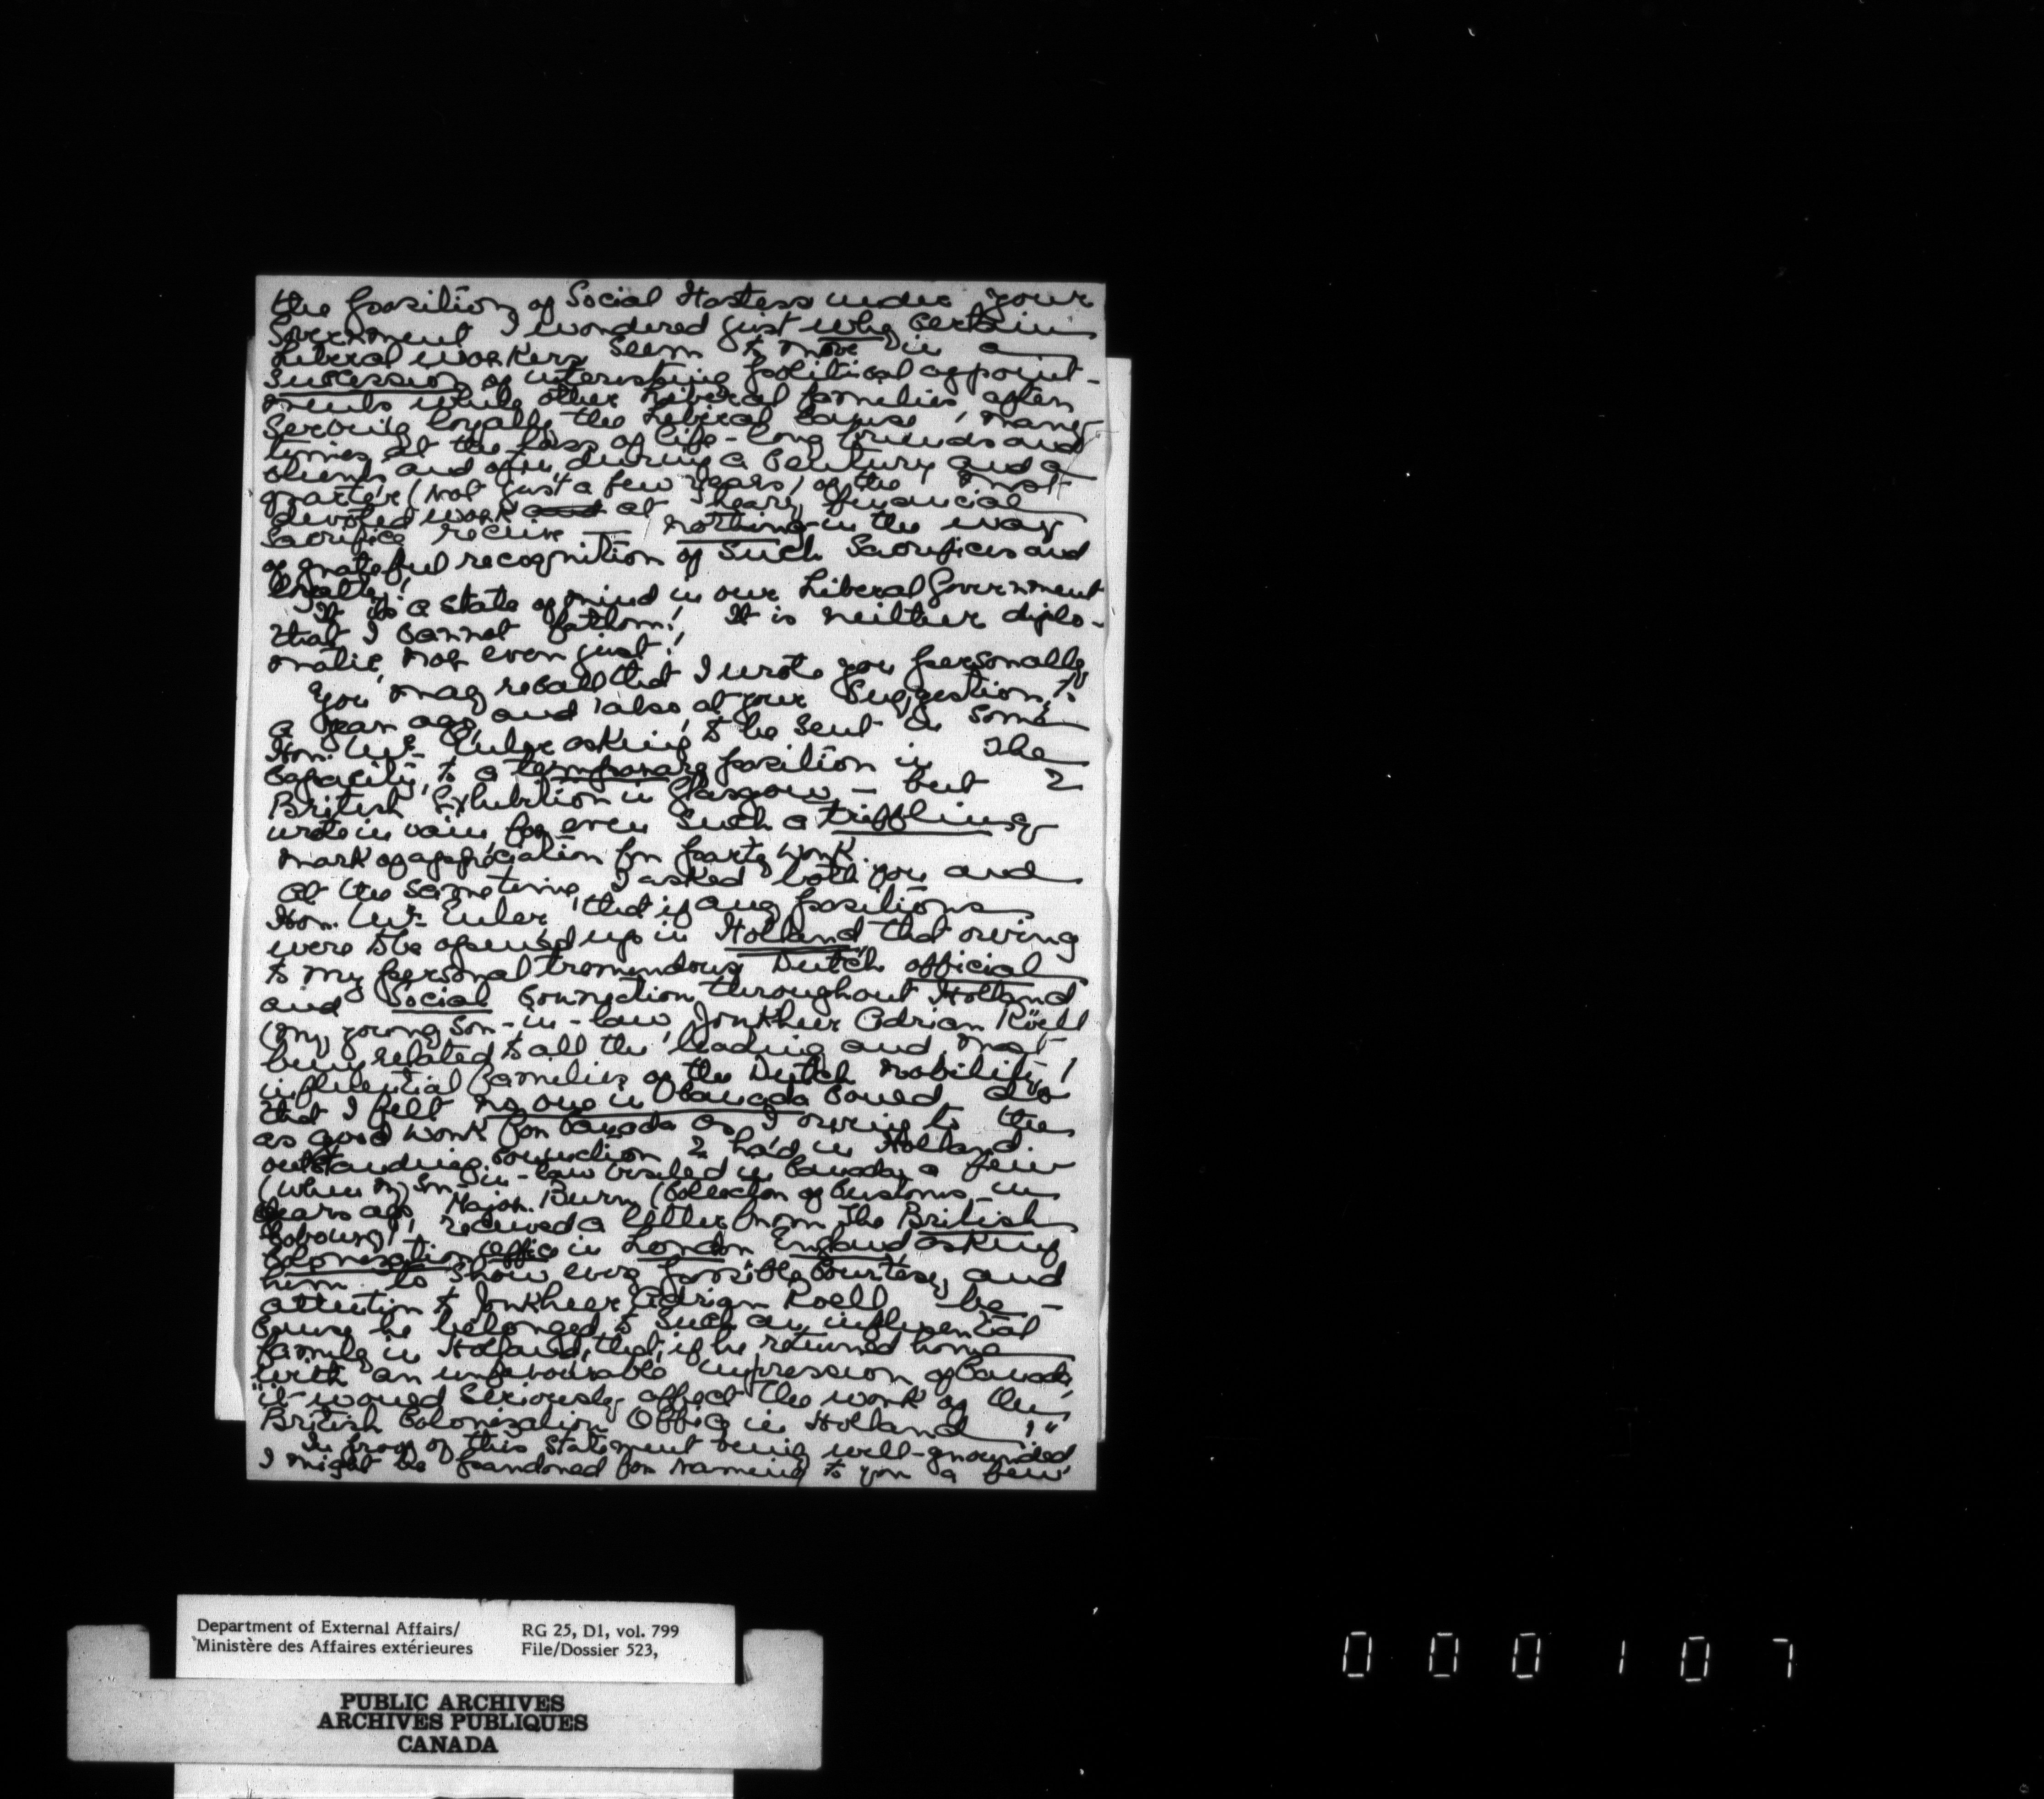 the position of Social Hostess under your
Government I wondered just why certain
Liberal workers seem to move in a
succession of interesting political appoint-
ments while other Liberal families after
serving loyally the Liberal cause, many
times at the loss of life-long friends and
clients and after during a century and a
quarter (not just a few years) of the most
devoted work and at heavy financial
sacrifice receive — nothing in the way
of grateful recognition of such sacrifices and
loyalty!
It is a state of mind in our Liberal Government
that I cannot fathom! It is neither diplo-
matic, nor even just!
You may recall that I wrote you personally
a year ago, and also at your suggestion, to
Hon. Mr. Euler asking to be sent in some
capacity, to a temporary position in The
British Exhibition in Glasgow — but I
wrote in vain for even such a triffling
mark of appreciation for party work.
At the same time, I asked both you and
Hon. Mr. Euler, that if any positions
were to be opened up in Holland, that owing
to my personal tremendous Dutch official
and Social connection throughout Holland
(my young son-in-law, Jonkheer Adrian Röell
being related to all the leading and most
influential families of the Dutch nobility)
that I felt no one in Canada could do
as good work for Canada as I owing to the
outstanding connection I had in Holland.
(When my son-in-law visited in Canada a few
years ago, Major Burn, (Collector of Customs in
Cobourg) received a letter from The British
Colonization Office in London England asking
him to show every possible courtesy and
attention to Jonkheer Adrian Roell be-
cause he belonged to such an influential
family in Holland, that, if he returned home
with an unfavourable impression of Canada,
"it would seriously affect the work of the
British Colonization Office in Holland!"
In proof of this statement being well-grounded
I might be pardoned for naming to you a few
Department of External Affairs/
Ministère des Affaires extérieures
RG 25, D1, vol. 799
File/Dossier 523,
PUBLIC ARCHIVES
ARCHIVES PUBLIQUES
CANADA
000107